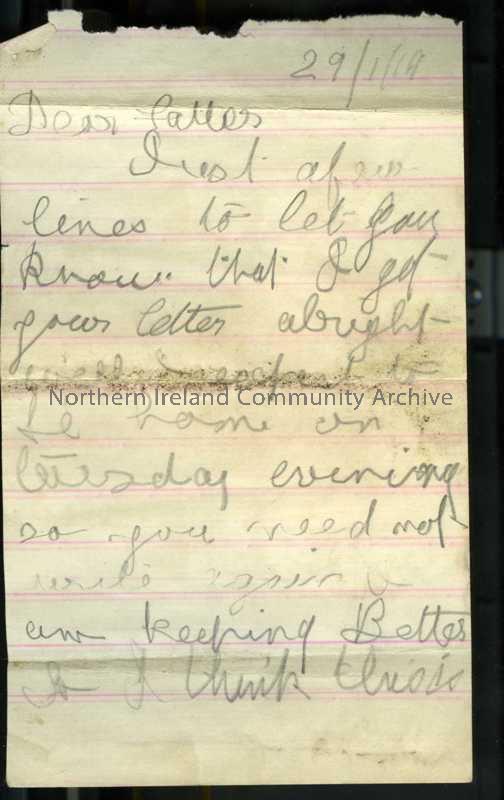 29/1/19
Dear father
Just a few
lines to let you
know that I got
your letter alright
well I expect to
Northern Ireland Community Archive
be home on
tuesday evening
so you need not
write again
am keeping Better
I think this is